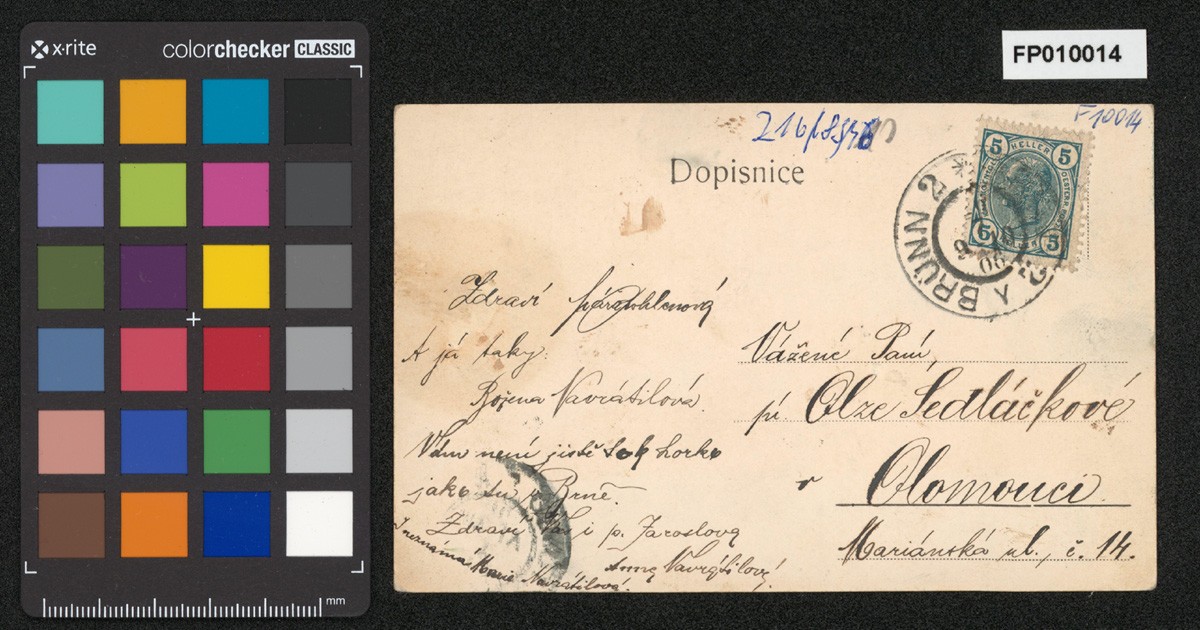 x·rite
colorchecker CLASSIC
mm
FP010014
F10014
216/8948
Dopisnice
5 HELLER 5
5 5
BRÜNN 2
9
06
Zdraví
A já taky.
Božena Navrátilová.
Vám není jistě tak horko
jako tu v Brně.
Zdraví i p. Jaroslova
Anna Navrátilová,
Marie Navrátilová.
Vážené Paní,
pí Olze Sedláčkové
v Olomouci
Mariánská ul., č. 14.